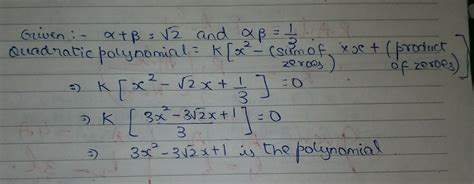 Given :- α+β = √2 and αβ = 1/3.
Quadratic polynomial = K[x² - (sum of zeroes) × x + (product of zeroes)]
⇒ K [ x² - √2x + 1/3 ] = 0
⇒ K [ (3x² - 3√2x + 1)/3 ] = 0
⇒ 3x² - 3√2x + 1 is the polynomial